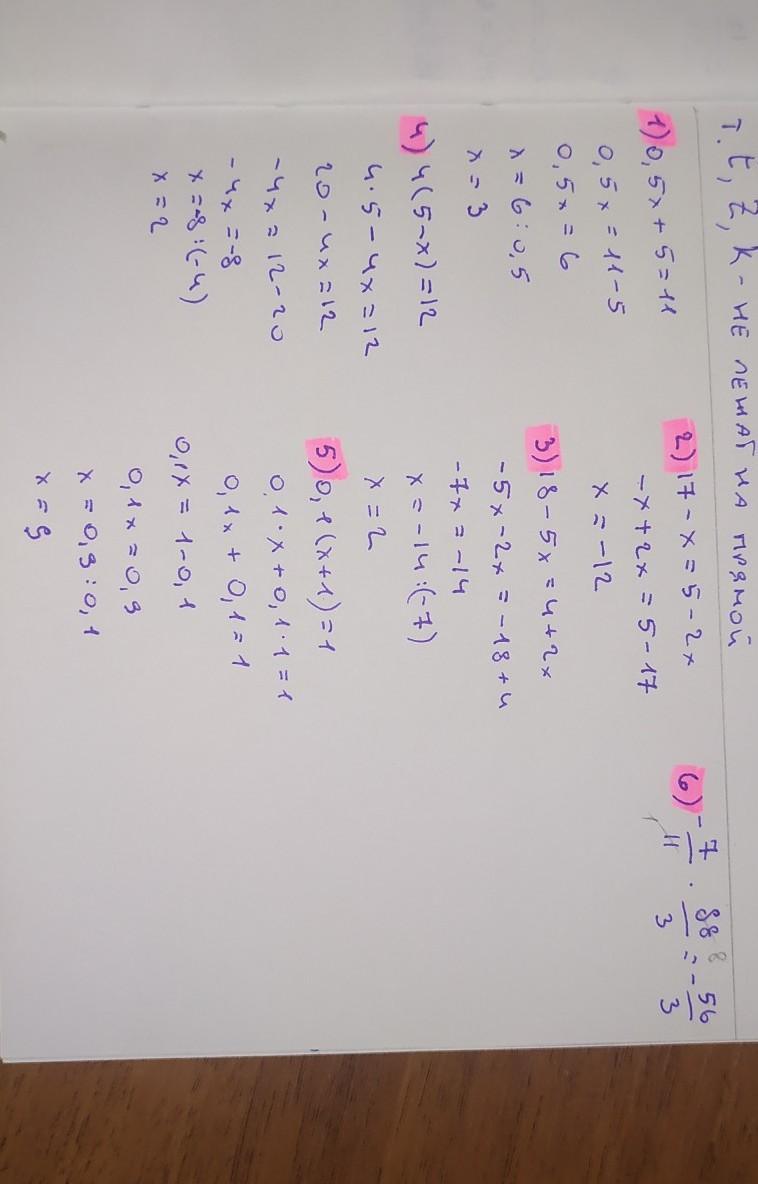 т. t, z, k - не лежат на прямой
1) 0,5x + 5 = 11
0,5x = 11 - 5
0,5x = 6
x = 6 : 0,5
x = 3
4) 4(5-x) = 12
4·5 - 4x = 12
20 - 4x = 12
-4x = 12 - 20
-4x = -8
x = -8 : (-4)
x = 2
2) 17 - x = 5 - 2x
-x + 2x = 5 - 17
x = -12
3) 18 - 5x = 4 + 2x
-5x - 2x = -18 + 4
-7x = -14
x = -14 : (-7)
x = 2
5) 0,1(x+1) = 1
0,1·x + 0,1·1 = 1
0,1x + 0,1 = 1
0,1x = 1 - 0,1
0,1x = 0,9
x = 0,9 : 0,1
x = 9
6) -7/11 · 88/3 = -56/3
1 8